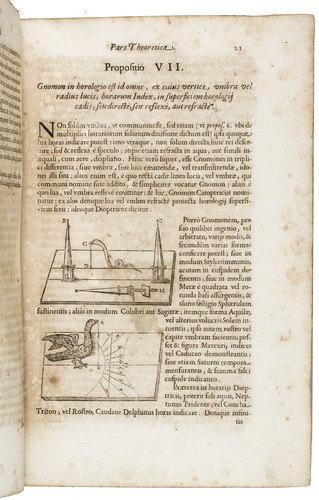 Pars Theoretica. 21
Propositio VII.
Gnomon in horologio est id omne, ex cuius vertice, vmbra vel
radius lucis, horarum Index, in superficiem horologij
cadit, seu directè, seu reflexe, aut refractè.
NOn solùm vmbra, vt communis fit, sed etiam ( vt propos. 6. vbi de
multiplici horariorum solarium diuisione dictum est) ipsa quoque
lux horas indicare potest: imo vtraque, non solum directa huic rei deser-
uire, sed & reflexa è speculo, atque etiam refracta in aqua, aut simili in-
æquali, cum aere, diaphano. Hinc verò liquet, esse Gnomones in tripli-
ci differentia, siue vmbræ, siue luci emittendæ, vel transmittendæ, ido-
nei illi sint: alius enim est, è quo recta cadit lumen lucis, vel vmbræ, qui
communi nomine sine addito, & simpliciter vocatur Gnomon: alius è
quo lux, vel vmbra reflexa emittitur & hic, Gnomon Catoptricus nomi-
natur: ex alio denique lux vel vmbra refracta proiecta horologij superfi-
ciem ferit: ideoque Dioptricus dicitur.
Porrò Gnomonem, pro
suo quilibet ingenio, vel
arbitratu, varijs modis, &
secundùm varias formas
conficere potest; siue in
modum Styli communis,
acutam in cuspidem de-
sinentis; siue in modum
Metæ quadratæ vel ro-
tunda basi assurgentis, &
summo fastigio Sphærulam
sustinentis; alias in modum Colubri aut Sagittæ; itemque forma Aquilæ,
vel alterius volucris Solem in-
tuentis, ipso autem rostro vel
capite vmbram facientis pos-
set & figura Mercurij indices
vel Caduceo demonstrantis;
siue etiam Saturni tempora
mensurantis, & summa falci
cuspide indicantis.
Præterea in horarijs Diop-
tricis, poterit sub aquis, Nep-
tunus Tridente; vel Concha
Triton; vel Rostro, Caudaue Delphinus horas indicare. Denique infini-
tis